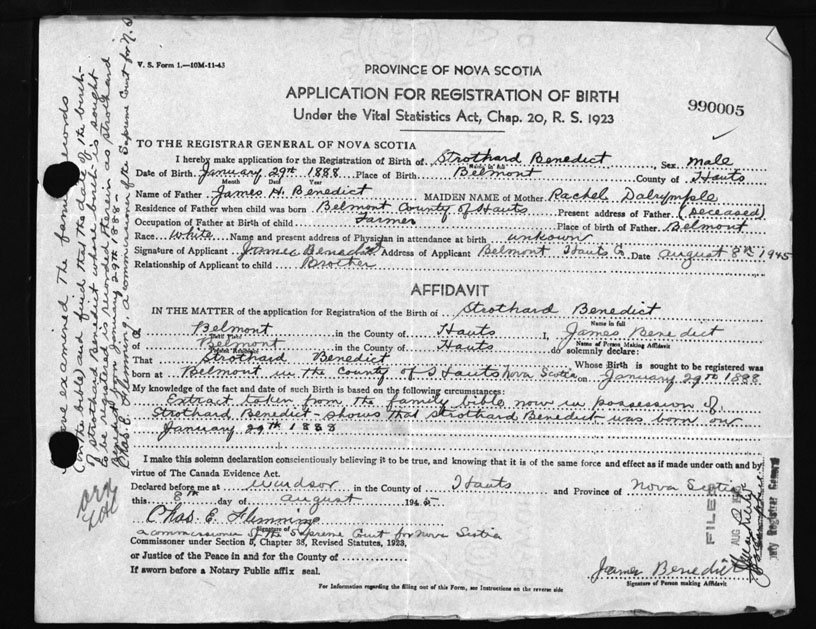 V. S. Form 1.—10M-11-43
PROVINCE OF NOVA SCOTIA
APPLICATION FOR REGISTRATION OF BIRTH
Under the Vital Statistics Act, Chap. 20, R. S. 1923
990005
TO THE REGISTRAR GENERAL OF NOVA SCOTIA
I hereby make application for the Registration of Birth of Strothard Benedict, Sex male
Name in full
Date of Birth January 29th 1888 Place of Birth Belmont County of Hants
Month Date Year
Name of Father James H. Benedict MAIDEN NAME of Mother Rachel Dalrymple
Residence of Father when child was born Belmont County of Hants Present address of Father (Deceased)
Occupation of Father at Birth of child Farmer Place of birth of Father Belmont
Race White Name and present address of Physician in attendance at birth unknown
Signature of Applicant James Benedict Address of Applicant Belmont Hants Co Date August 8th 1945
Relationship of Applicant to child Brother
AFFIDAVIT
IN THE MATTER of the application for Registration of the Birth of Strothard Benedict
Name in full
of Belmont in the County of Hants I, James Benedict
Name of Person Making Affidavit
of Belmont in the County of Hants do solemnly declare:
That Strothard Benedict Whose Birth is sought to be registered was
born at Belmont in the County of Hants Nova Scotia on January 29th 1888
My knowledge of the fact and date of such Birth is based on the following circumstances:
Extract taken from the family bible now in possession of
Strothard Benedict - shows that Strothard Benedict was born on
January 29th 1888
I make this solemn declaration conscientiously believing it to be true, and knowing that it is of the same force and effect as if made under oath and by
virtue of The Canada Evidence Act.
Declared before me at Windsor in the County of Hants and Province of Nova Scotia
this 8th day of August 1945
Chas E. Flemming
Signature of
a commissioner of the Supreme Court for Nova Scotia
Commissoner under Section 8, Chapter 38, Revised Statutes, 1923,
or Justice of the Peace in and for the County of
If sworn before a Notary Public affix seal.
James Benedict
Signature of Person making Affidavit
For Information regarding the filling out of this Form, see Instructions on the reverse side
I have examined the family records
(in the bible) and find that the date of the birth
of Strothard Benedict whose birth is sought
to be registered is recorded therein as Strothard
Benedict born January 29th 1888 -
Chas E. Flemming, a commissioner of the Supreme Court for N.S
FILED
AUG
Deputy Registrar General